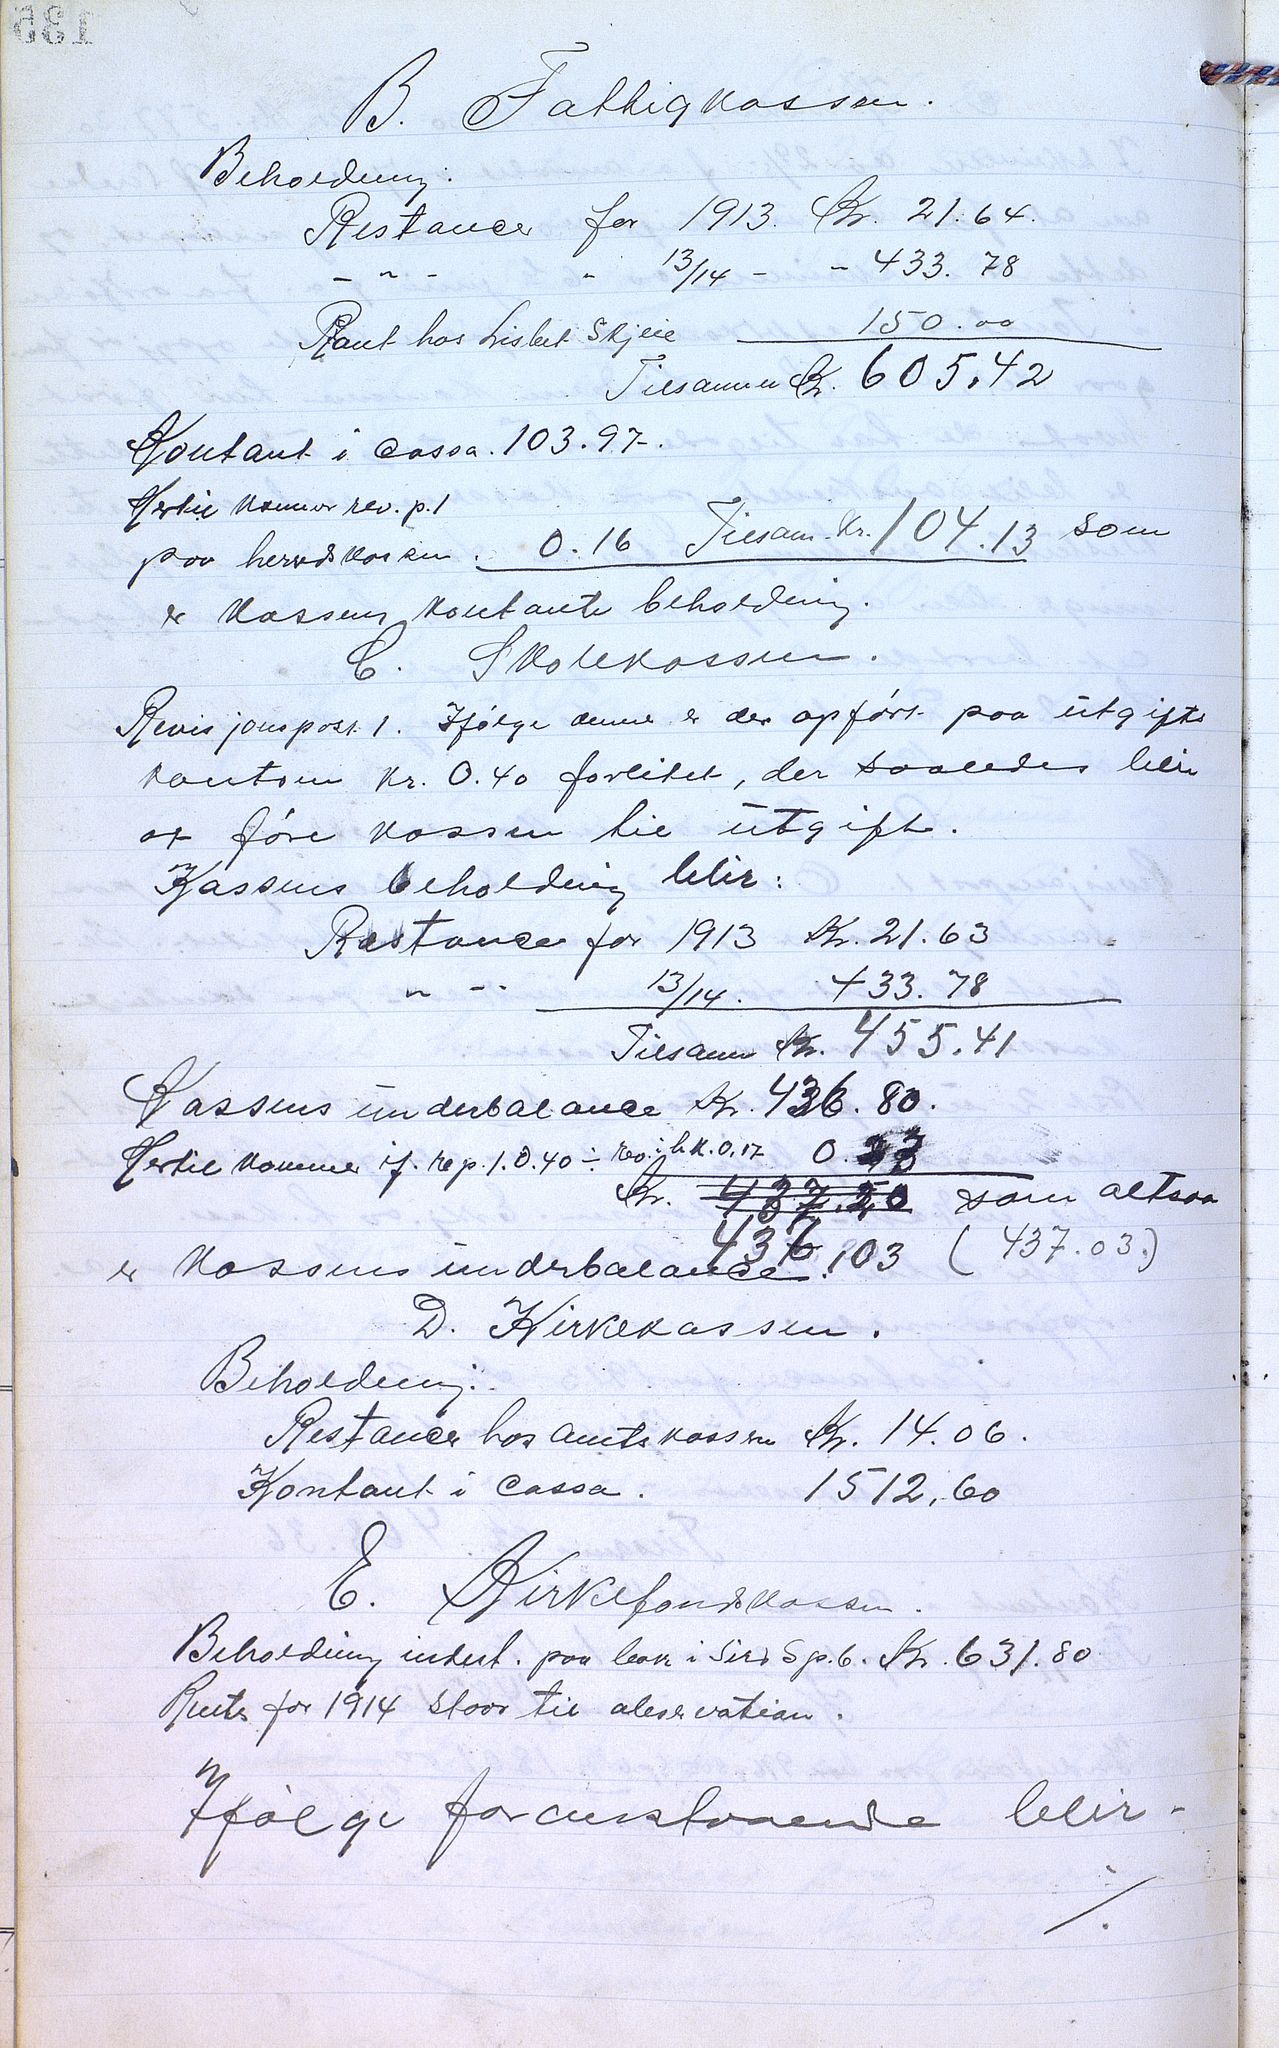 B. Fattigkassen.
Beholdning:
Restancer for 1913. Kr. 21.64.
– " – " 13/14 – " 433.78
Pant hos Lisbet Skjeie 150.00
Tilsammen Kr. 605.42
Kontant i cassa. 103.97.
Hertil kommer rev.p.1
paa herredskassen. 0.16 Tilsam. Kr. 104.13 som
er kassens kontante beholdning.
C. Skolekassen.
Revisjonspost 1. Ifølge denne er der opført paa utgifts
kontoen kr. 0.40 forlitet, der saaledes blir
at føre kassen til utgift.
Kassens beholdning blir:
Restancer for 1913 Kr. 21.63
" – " 13/14. 433.78
Tilsamm Kr. 455.41
Kassens underbalance Kr. 436.80.
Hertil kommer if. rep.1.0.40 ÷ rev. i h.k.0.17 0.23
Kr. 437.20 som altsaa
436.03 (437.03.)
er kassens underbalance.
D. Kirkekassen.
Beholdning:
Restancer hos amtskassen Kr. 14.06.
Kontant i cassa. 1512,60
E. Kirkefondskassen.
Beholdning indest. paa bok i Sird Sp.b. Kr. 631.80
Rente for 1914 staar til observation.
Ifølge foranstaaende blir
./.